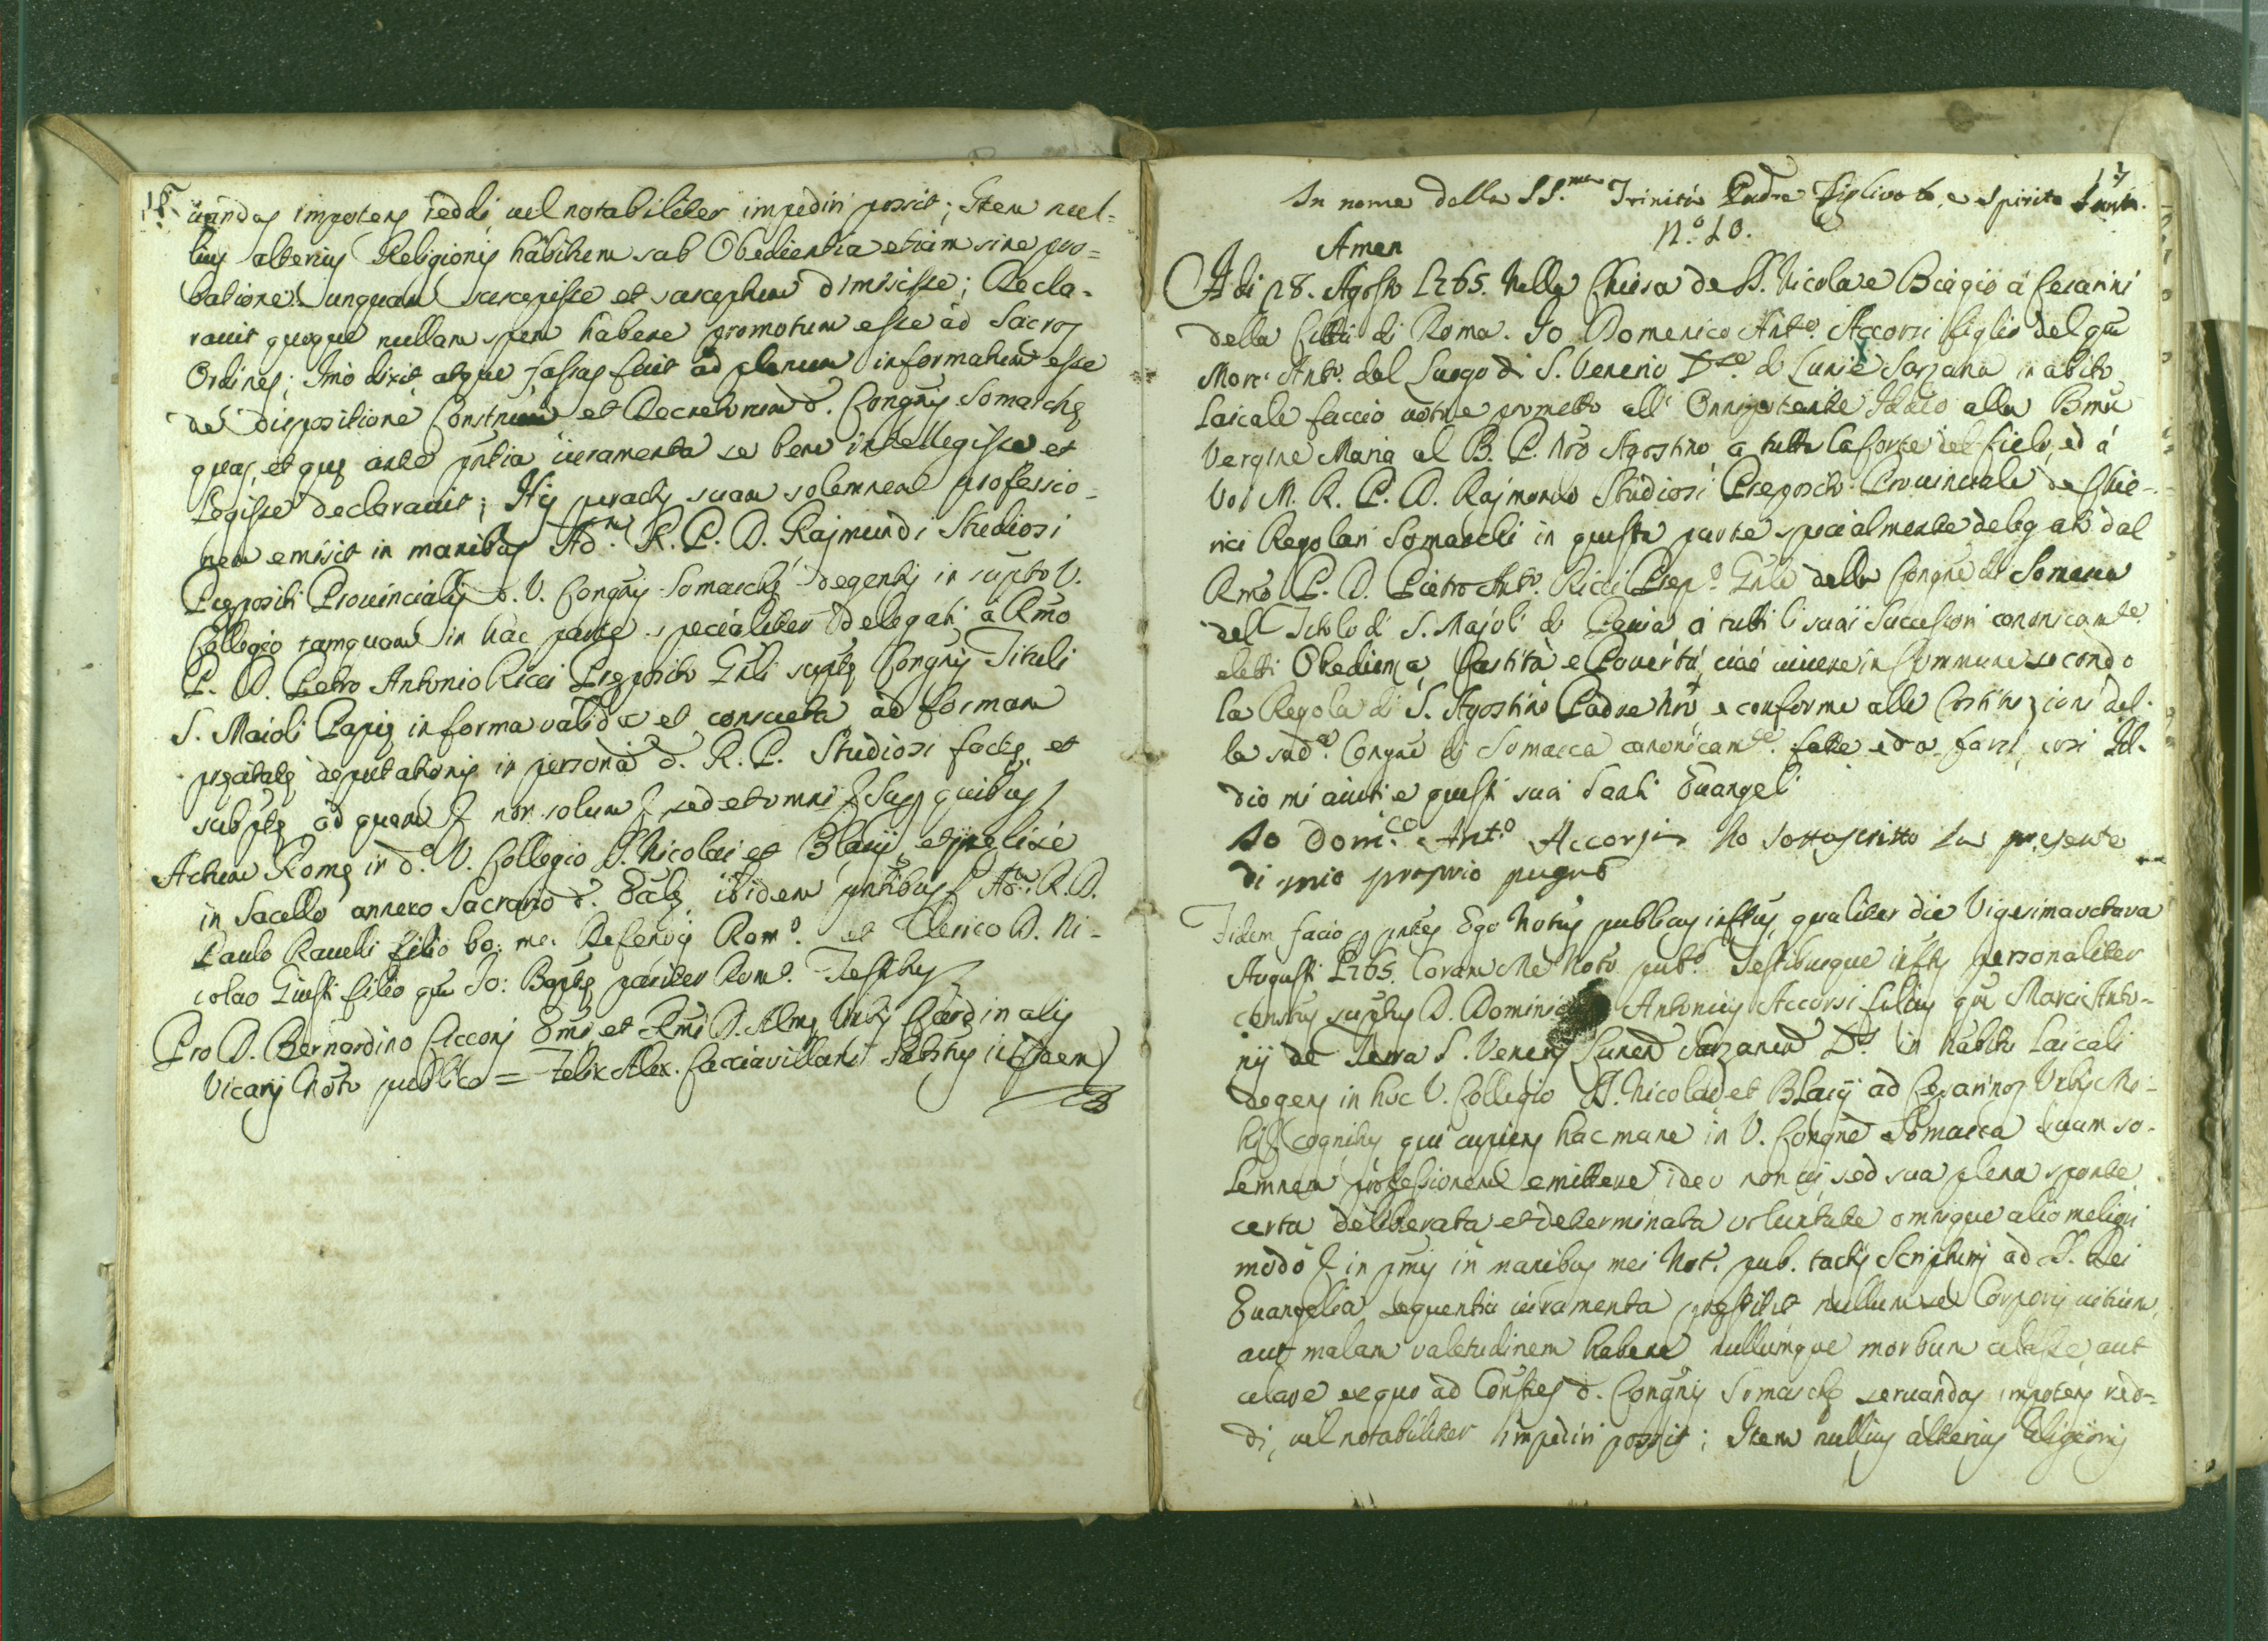 16.
uandas impotens reddi, vel notabiliter impediri possit; Item nul=
lius alterius Religionis habitum sub Obedientia etiam sine pro=
batione unquam suscepisse et susceptum dimisisse; Decla-
ravit quoque nullam spem habere promotum esse ad Sacros
Ordines; Imò dixit, atque fassus fuit ad plenum informatum esse
de dispositione Constnum et Decretorum d. Congñis Somaschę
quas, et quę ante pntia iuramenta se bene intellegisse et
Legisse declaravit; His peractis suam solemnem professio-
nem emisit in manibus Adm. R. P. D. Rajmundi Studiosi
Prępositi Provincialis d. V. Congñis Somaschę degentis in supto V.
Collegio tamquam in hac parte specialiter delegati à Rmo
P. D. Petro Antonio Ricci Pręposito Gñli suptę Congñis Tituli
S. Maioli Papię in forma valida et consueta ad formam
pręcitatę deputationis in persona d. R. P. Studiosi factę, et
subptę ad quam & non solum & sed et omni & Sup quibus
Actum Romę in do. V. Collegio SS. Nicolai et Blasij, et prelixe
in Sacello annexo Sacrario d. Eccłę ibidem pntibus Adm. R. D.
Paulo Ravelli filio bo: me: Defendi Romo. et Clerico D. Ni-
colao Giusti filio qm Jo: Baptę pariter Romo. Testibus
Pro D. Bernardino Cicconj Emi et Rmi D. Almę Urbis Cardinalis
Vicarij Noto publico = Felix Alex. Cacciavillani Substus idem
17
In nome della SS.ma Trinità Padre Figlivolo, e Spirito Santo.
Amen
N.o 10.
A di 28. Agosto 1765. Nella Chiesa de SS. Nicola e Biagio à Cesarini
della Città di Roma. Io Domenico Anto. Accorsi figlio del qm
Marc' Anto. dal Luogo di S. Venerio Dse. di Luni e Sarzana in abito
Laicale faccio voto e prometto all' Onnipotente Iddio alla Bma
Vergine Maria al B. P. Nro Agostino, a tutta la Corte del Cielo, ed à
Voi M. R. P. D. Rajmondo Studiosi Preposito Provinciale de Chie-
rici Regolari Somaschi in questa parte specialmente delegato dal
Rmo P. D. Pietro Anto. Ricci Prepo. Gñle della Congñe di Somasca
del Titolo di S. Majolo di Pavia, à tutti li suoi Successori canonicamte.
eletti Obedienza, Castità e Povertà, cioè vivere in Commune secondo
la Regola di S. Agostino Padre Nro, e conforme alle Costituzioni del-
la suda. Congñe di Somasca canonicamte. fatte, ed a farsi, così Id-
dio mi aiuti e questi suoi Santi Evangeli
Io Dom.co Ant.o Accorsi ho sottoscritto la presente
di mio proprio pugno
Fidem facio p pntes Ego Notus pubblicus inftus, qualiter die Vigesima octava
Augusti 1765. Coram Me Noto pubo. Testibusque inftis personaliter
constus suptus D. Dominicus Antonius Accorsi filius qm Marci Anto-
nij de Terra S. Venerij Lunen Sarzanen Ds. in habitu Laicali
degens in hoc V. Collegio SS. Nicolai et Blasij ad Cesarinos Urbis Mi-
hi & cognitus qui cupiens hac mane in V. Congñe Somasca suam so-
lemnem professionem emittere ideo non vi, sed sua plena sponte
certa deliberata et determinata voluntate omnique alio meliori
modo & in pmis in manibus mei Noti. pub. tactis Scripturis ad SS. Dei
Evangelia sequentia iuramenta pręstitit nullum se Corporis vitium,
aut malam valetudinem habere nullumque morbum celasse, aut
celare ex quo ad Constnes d. Congñis Somaschę servandas impotens red-
di, vel notabiliter impediri possit; Item nullius alterius Religionis